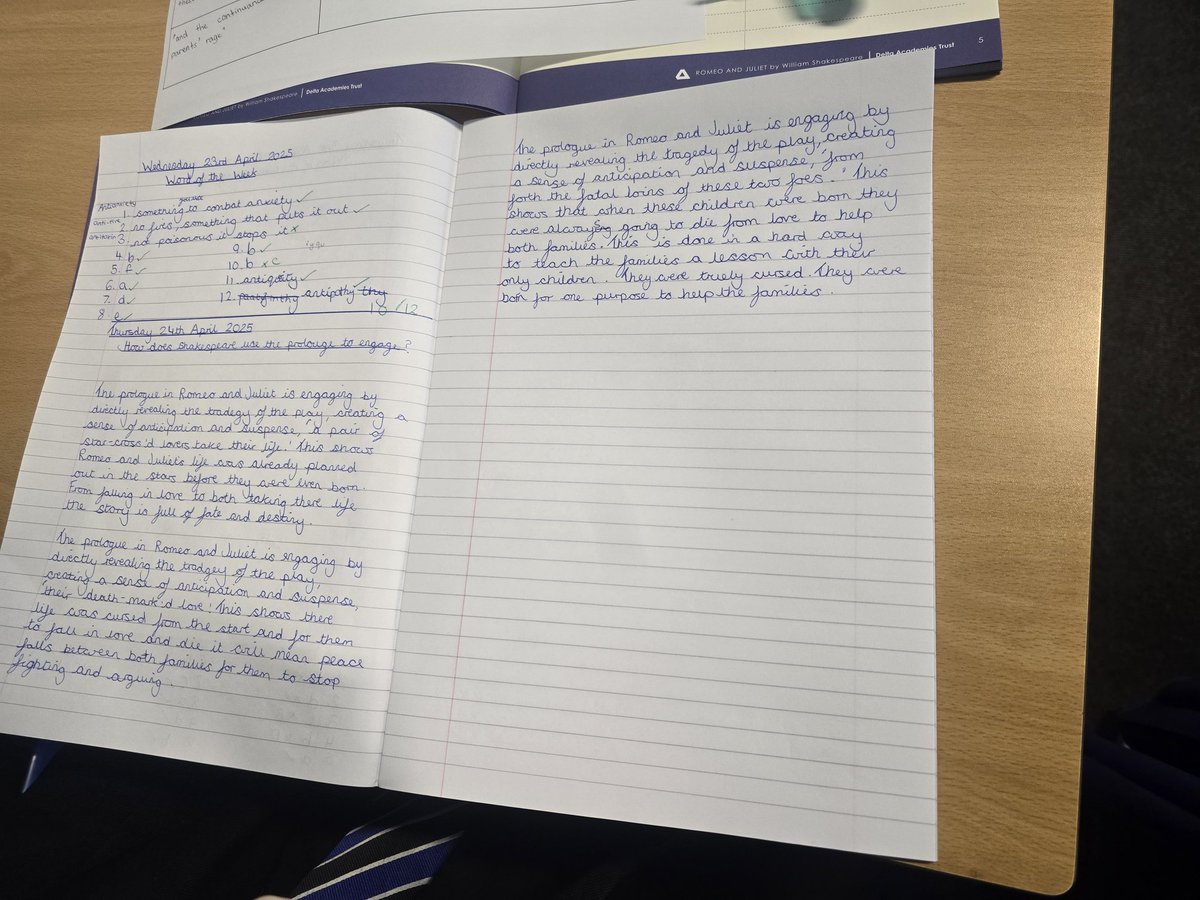 "and the continuance
parents' rage"
ROMEO AND JULIET by William Shakespeare | Delta Academies Trust
ROMEO AND JULIET by William Shakespeare | Delta Academies Trust 5
Wednesday 23rd April 2025
Word of the Week
Antianxiety
1. something to combat anxiety ✓
2. no fires, something that puts it out ✓
3. no poisonous it stops it x
4. b ✓
5. f ✓
6. a ✓
7. d ✓
8. e ✓
9. b ✓
10. b x c
11. antiquity ✓
12. antipathy ✓ they
10/12
Thursday 24th April 2025
How does Shakespeare use the prolouge to engage?
The prologue in Romeo and Juliet is engaging by
directly revealing the tradegy of the play, creating a
sense of anticipation and suspense, 'a pair of
star-cross'd lovers take their life.' This shows
Romeo and Juliet's life was already planned
out in the stars before they were even born.
From falling in love to both taking there life
the story is full of fate and destiny.
The prologue in Romeo and Juliet is engaging by
directly revealing the tradgey of the play,
creating a sense of anticipation and suspense,
'their death-mark'd love.' This shows there
life was cursed from the start and for them
to fall in love and die it will mean peace
falls between both families for them to stop
fighting and arguing.
The prologue in Romeo and Juliet is engaging by
directly revealing the tragedy of the play, creating
a sense of anticipation and suspense, 'from
forth the fatal loins of these two foes.' This
shows that when these children were born they
were always going to die from love to help
both families. This is done in a hard way
to teach the families a lesson with their
only children. They were truely cursed. They were
born for one purpose to help the families.